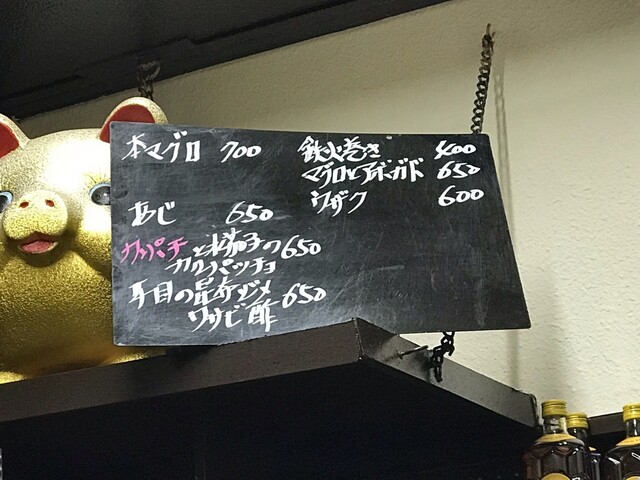 本マグロ 700
あじ 650
カンパチと水茄子の 650
カルパッチョ
平目の昆布ジメ 650
ワサビ酢
鉄火巻き 400
マグロとアボガド 650
ウザク 600